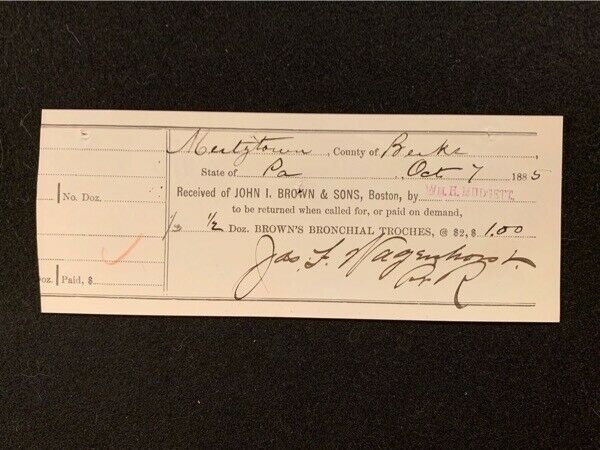 Mertztown, County of Berks,
State of Pa, Oct 7 1885
Received of JOHN I. BROWN & SONS, Boston, by WM. H. MUDGETT,
to be returned when called for, or paid on demand,
1/3 1/2 Doz. BROWN'S BRONCHIAL TROCHES, @ $2, $ 1.00
Jas. F. Wagenhorst
No. Doz.
oz. Paid, $